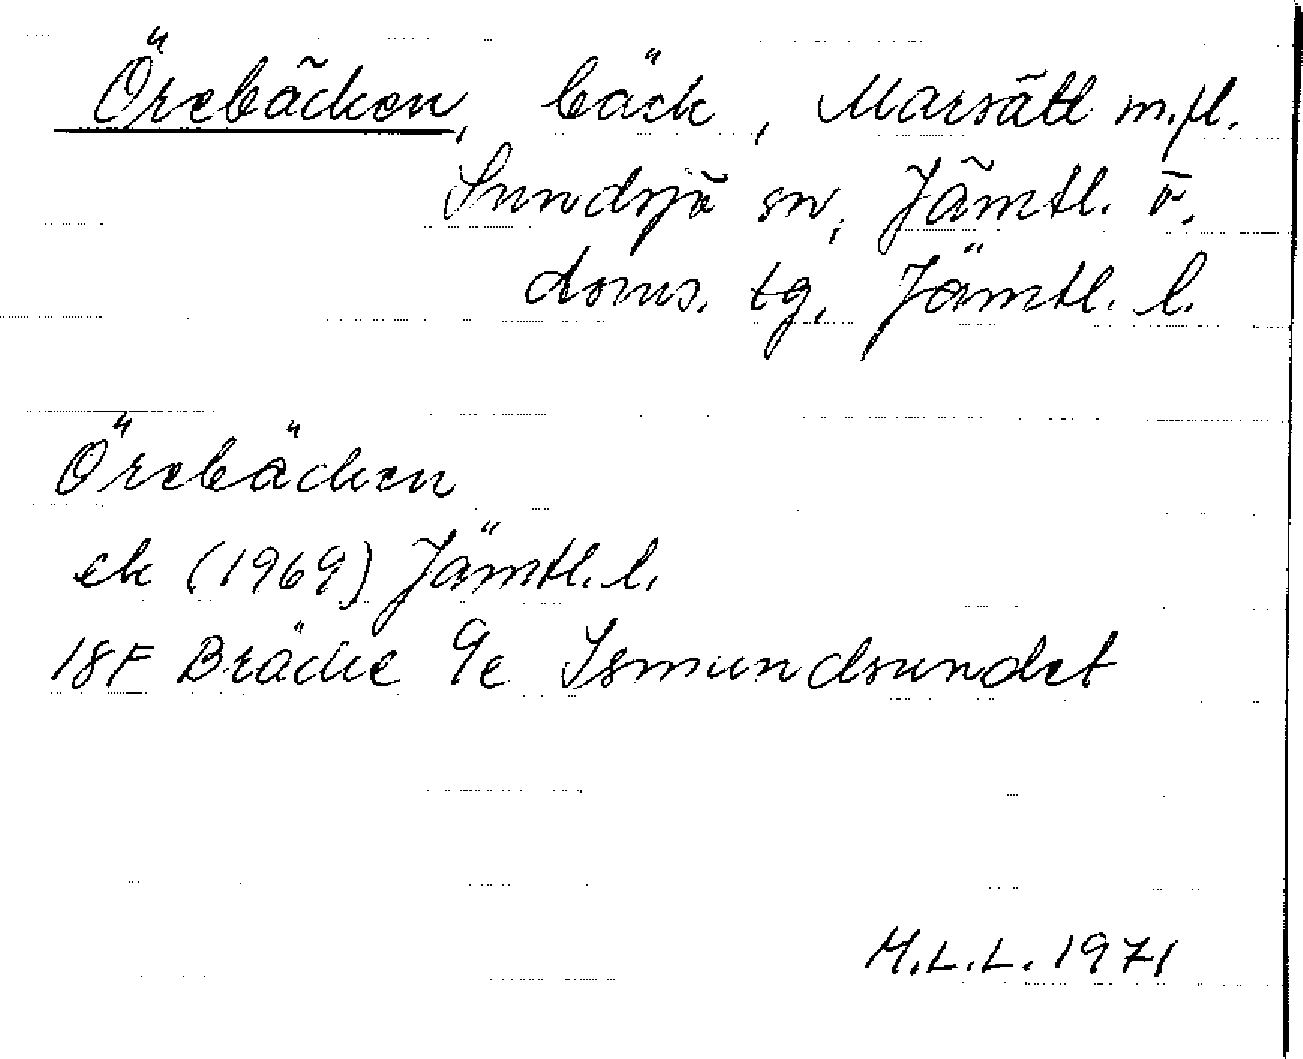 Örebäcken, bäck, Marsätt m.fl.
Sundsjö sn, Jämtl. ö.
doms. tg, Jämtl. l.
Örebäcken
ek (1969) Jämtl. l.
18F Bräcke 9e Ismundsundet
M.L.L. 1971